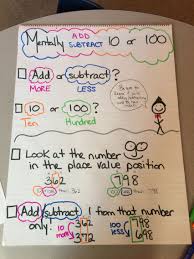 Mentally ADD SUBTRACT 10 or 100
Add or subtract?
MORE LESS
10 or 100?
Ten Hundred
Look at the number
in the place value position
362 798
Add/subtract 1 from that number
only: 362 10 more 372 100 less 798 698